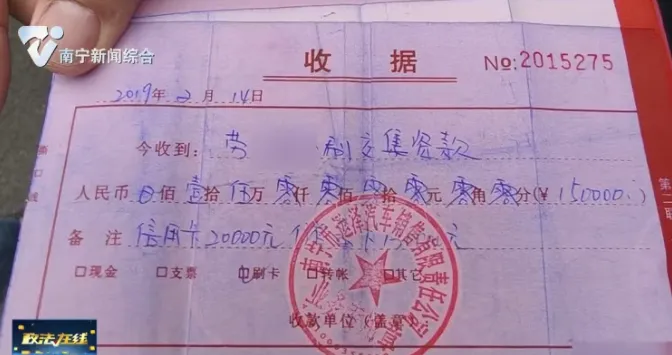 南宁新闻综合
收据 №:2015275
2019年2月14日
今收到:劳 刷交集资款
人民币 佰壹拾伍万零仟零佰零拾零元零角零分(¥150000.)
备注 信用卡20000元 元
□现金 □支票 刷卡 □转帐 □其它
收款单位(盖章)
汽车销售有限责任公司
第二联
政法在线